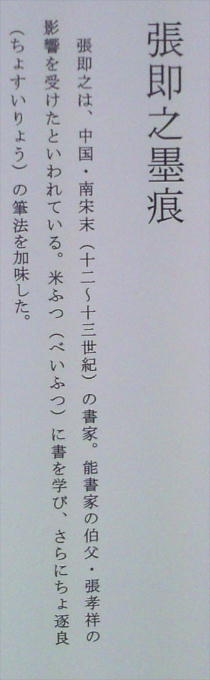 張即之墨痕
張即之は、中国・南宋末（十二～十三世紀）の書家。能書家の伯父・張孝祥の
影響を受けたといわれている。米ふつ（べいふつ）に書を学び、さらにちょ逐良
（ちょすいりょう）の筆法を加味した。